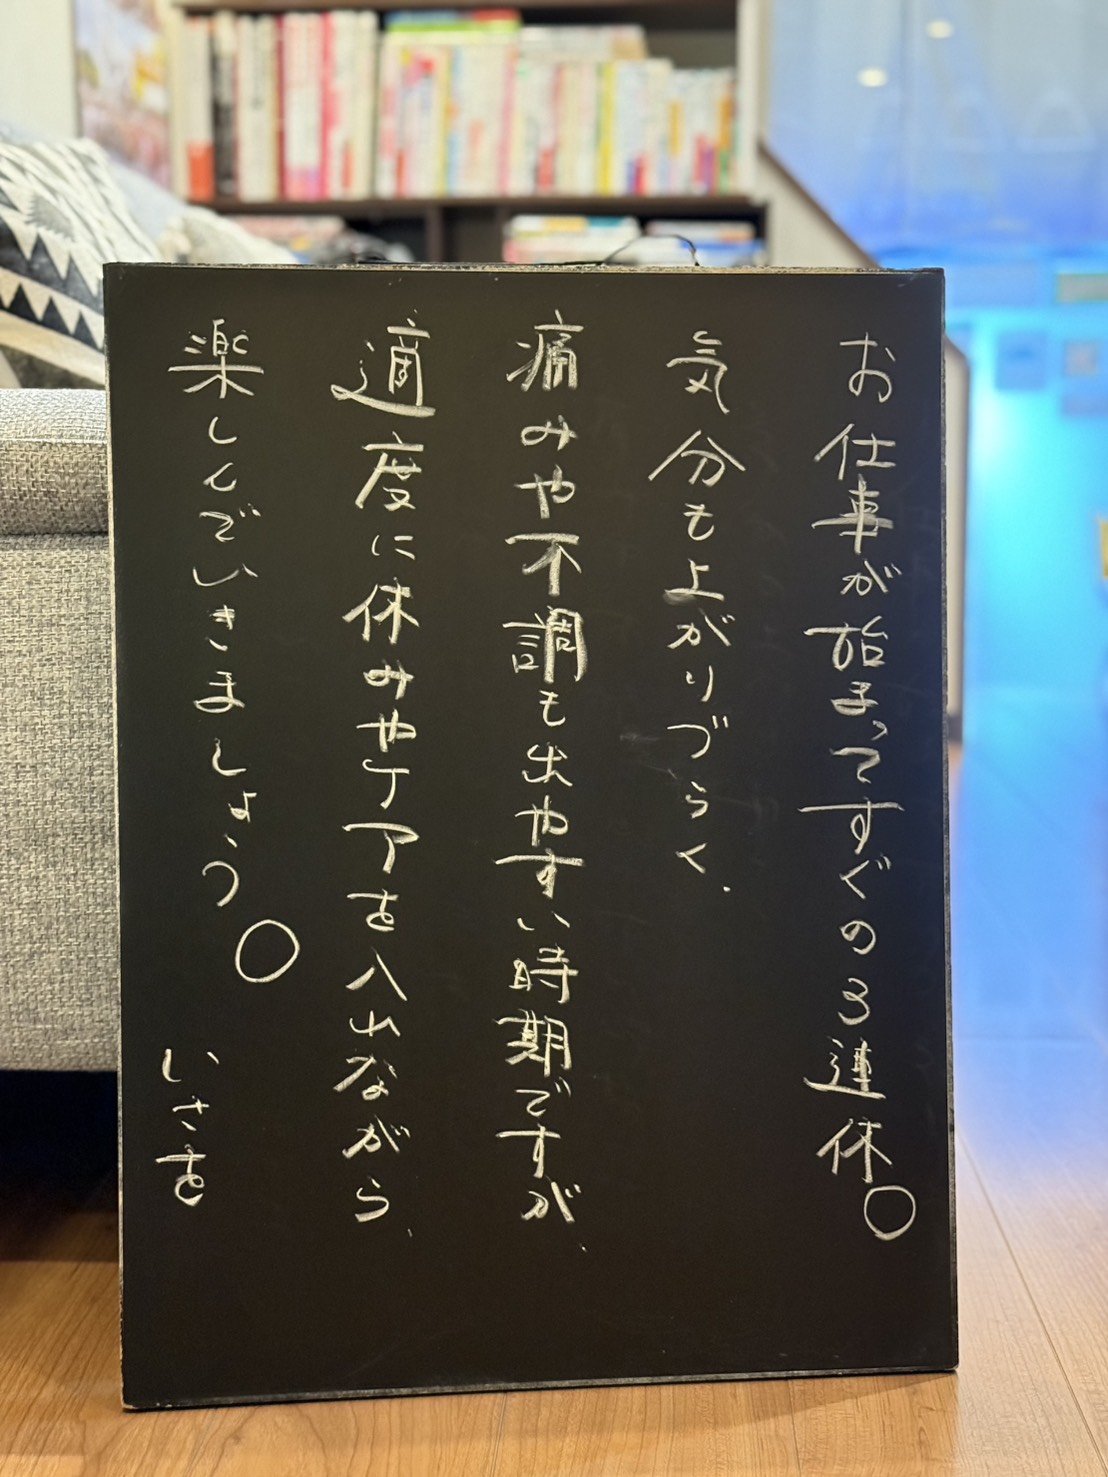 お仕事が始まってすぐの3連休。
気分も上がりづらく、
痛みや不調も出やすい時期ですが、
適度に休みやケアを入れながら、
楽しんでいきましょう。
いさを